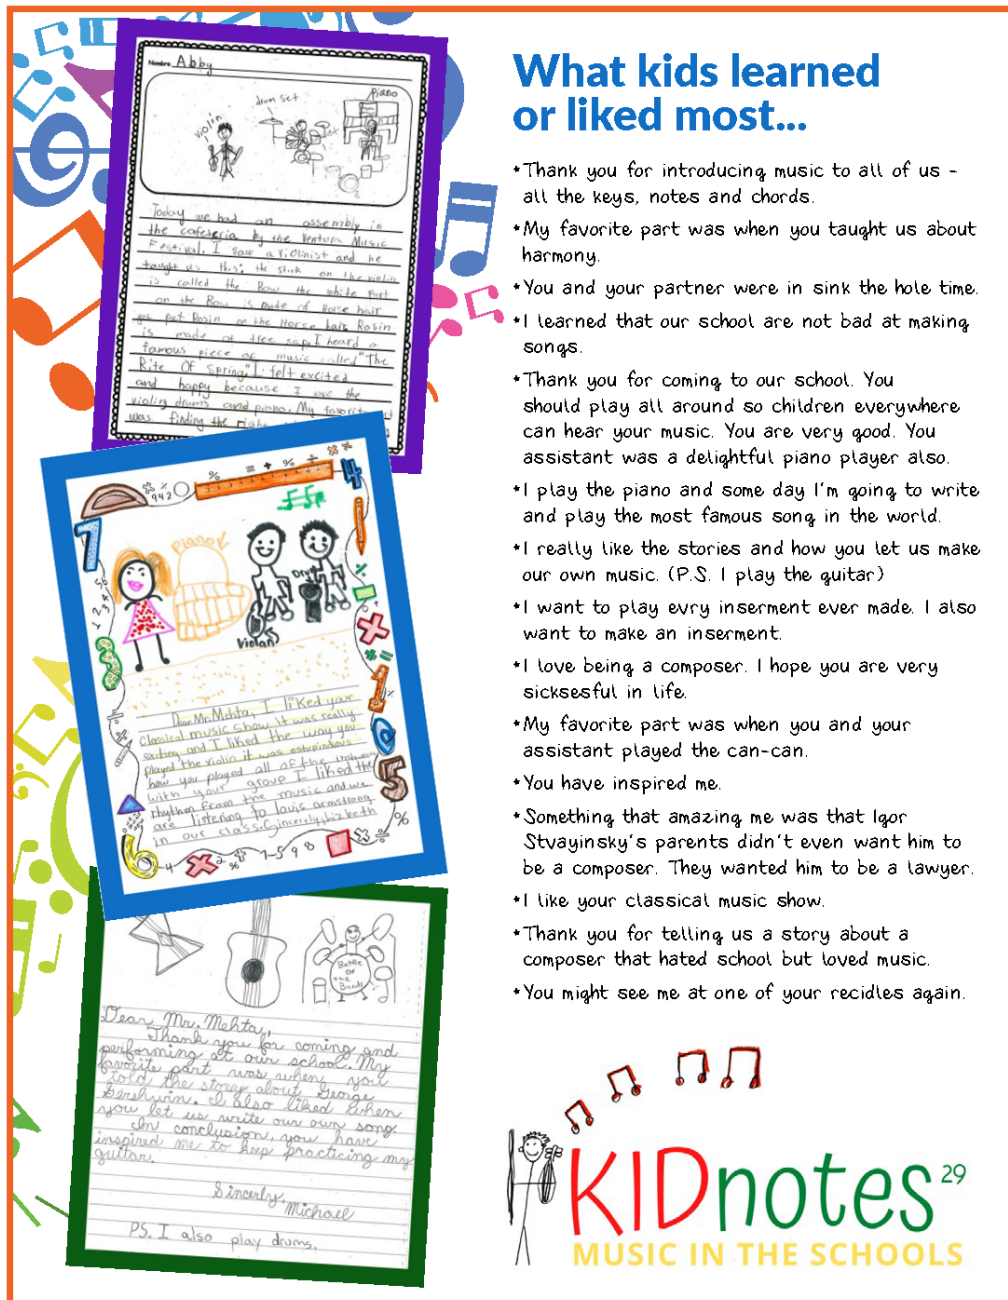 Nombre Abby
violin
drum set
Piano
Today we had an assembly in
the cafeteria by the Ventura Music
Festival. I saw a violinist and he
taught us this: the stick on the violin
is called the Bow the white part
on the Bow is made of Horse hair
put Rosin on the Horse hair Rosin
is made of tree sap. I heard a
famous piece of music called "The
Rite Of Spring." I felt excited
and happy because I the
violin drums and piano. My favorite
was finding the right
Piano
Violan
Dear Mr. Mehta, I liked your
classical music show it was really
exiting and I liked the way you
played the violin it was
how you played all of the
with your group I liked the
rhythm from the music and we
are listening to louis armstrong
in our class. Sincerely,
Battle
of
the
Bands
Dear Mr. Mehta,
Thank you for coming and
performing at our school. My
favorite part was when you
told the story about George
Gershwin. I also liked when
you let us write our own song.
In conclusion, you have
inspired me to keep practicing my
guitar.
Sincerely,
Michael
PS. I also play drums.
What kids learned
or liked most...
*Thank you for introducing music to all of us -
all the keys, notes and chords.
*My favorite part was when you taught us about
harmony.
*You and your partner were in sink the hole time.
*I learned that our school are not bad at making
songs.
*Thank you for coming to our school. You
should play all around so children everywhere
can hear your music. You are very good. You
assistant was a delightful piano player also.
*I play the piano and some day I'm going to write
and play the most famous song in the world.
*I really like the stories and how you let us make
our own music. (P.S. I play the guitar)
*I want to play evry inserment ever made. I also
want to make an inserment.
*I love being a composer. I hope you are very
sicksesful in life.
*My favorite part was when you and your
assistant played the can-can.
*You have inspired me.
*Something that amazing me was that Igor
Stvayinsky's parents didn't even want him to
be a composer. They wanted him to be a lawyer.
*I like your classical music show.
*Thank you for telling us a story about a
composer that hated school but loved music.
*You might see me at one of your recidles again.
KIDnotes 29
MUSIC IN THE SCHOOLS